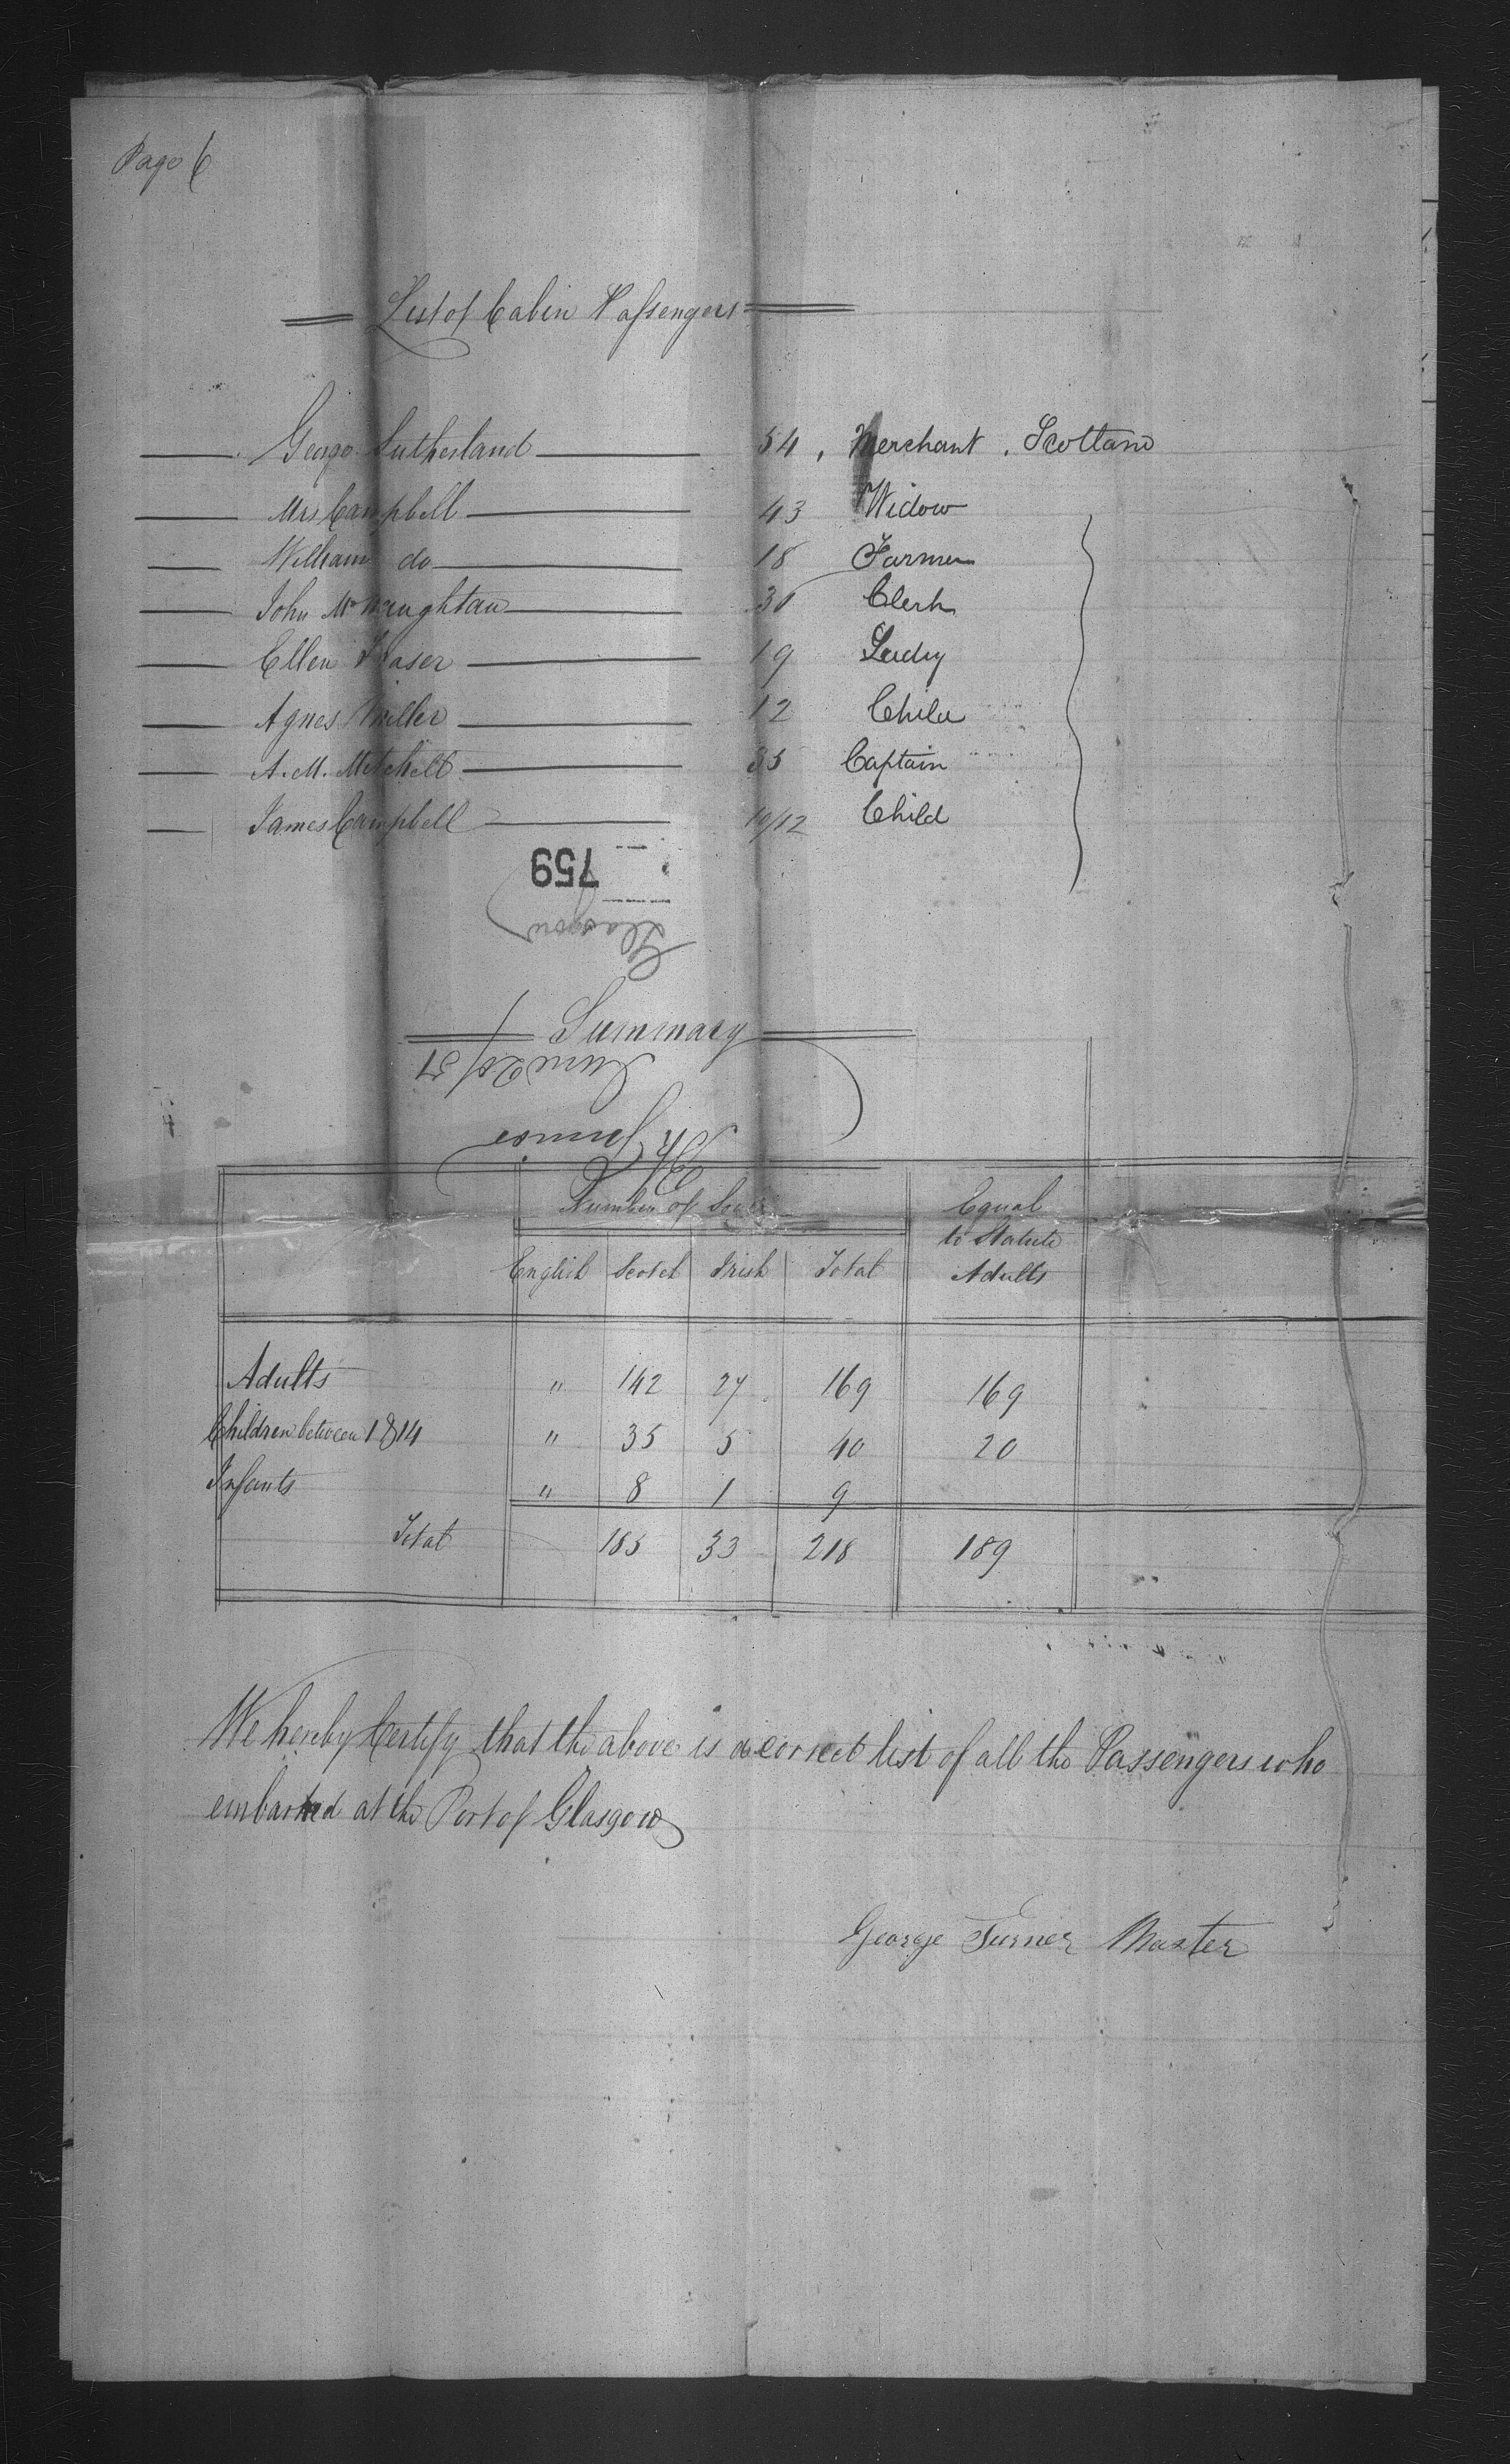 Page 6
List of Cabin Passengers
George Sutherland 54 , Merchant . Scotland
Mrs Campbell 43 Widow
William do 18 Farmer
John McNaughtan 30 Clerk
Ellen Fraser 19 Lady
Agnes Miller 12 Child
A. M. Mitchell 35 Captain
James Campbell 10/12 Child
759
Glasgow
Summary
June 20/57
Number of Souls Equal
to Statute
English Scotch Irish Total Adults
Adults " 142 27 169 169
Children between 1 & 14 " 35 5 40 20
Infants " 8 1 9
Total 185 33 218 189
We hereby Certify that the above is a correct list of all the Passengers who
embarked at the Port of Glasgow
George Turner Master